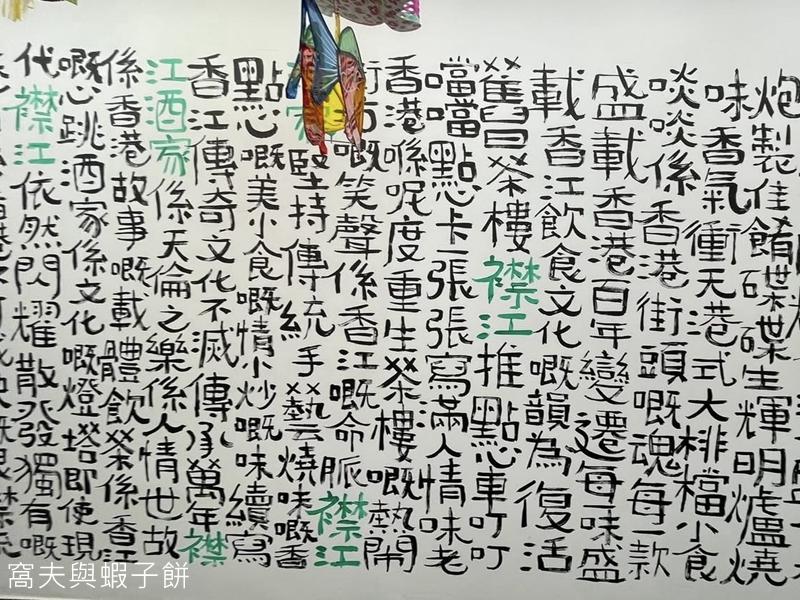 炮製佳餚碟碟生輝明爐燒
味香氣衝天港式大棑檔小食
啖啖係香港街頭嘅魂每一款
盛載香港百年變遷每一味盛
載香江飲食文化嘅韻為復活
舊日茶樓襟江推點心車叮叮
噹噹點心卡一張張寫滿人情味老
香港喺呢度重生茶樓嘅熱鬧
街市嘅笑聲係香江嘅命脈襟江
家堅持傳統手藝燒味嘅香
點心嘅美小食嘅情小炒嘅味續寫
香江傳奇文化不滅傳承萬年襟
江酒家係天倫之樂係人情世故
係香港故事嘅載體飲茶係香江
嘅心跳酒家係文化嘅燈塔即使現
代襟江依然閃耀散發獨有嘅
窩夫與蝦子餅